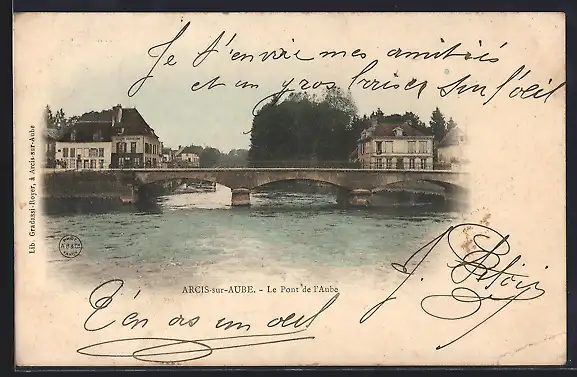 Je t'envoie mes amitiés
et un gros baiser sur l'œil
Lib. Gradassi-Royer, à Arcis-sur-Aube
ARCIS-sur-AUBE. - Le Pont de l'Aube
T'en as un œil